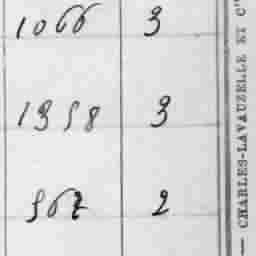 1066 3
1358 3
567 2
CHARLES-LAVAUZELLE ET C